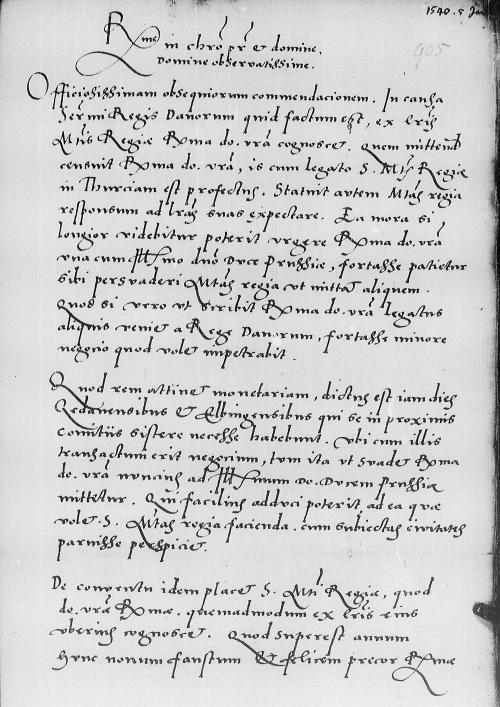 1540. 5 Jan
905
Rme in chro pr et domine,
Domine observatissime.
Officiosissimam obsequiorum commendacionem. In causa
Sermi Regis Danorum quid factum est, ex lris
Mtis Regiae Rma do. vra cognoscet. Quem mittend
censuit Rma do. vra, is cum legato S. Mtis Regiae
in Thurciam est profectus. Statuit autem Mtas regia
responsum ad lras suas expectare. Ea mora si
longior videbitur poterit urgere Rma do. vra
una cum Illmo dno Duce Prussiae, fortasse patietur
sibi persuaderi Mtas regia ut mittat aliquem.
Quod si vero ut scribit Rma do. vra legatus
aliquis veniet a Rege Danorum, fortasse minore
negocio quod volet impetrabit.
Quod rem attinet monetariam, dictus est iam dies
Gedanensibus et Elbingensibus qui se in proximis
comitiis sistere necesse habebunt. Ubi cum illis
transactum erit negocium, tum ita ut suadet Rma
do. vra nuncius ad Illmum Do. Ducem Prussiae
mittetur. Qui facilius adduci poterit ad ea quae
volet S. Mtas regia facienda. cum subiectas civitates
paruisse perspiciet.
De conventu idem placet S. Mti Regiae, quod
do. vrae Rmae. quemadmodum ex lris eius
uberius cognoscet. Quod superest annum
hunc novum faustum et felicem precor Rmae